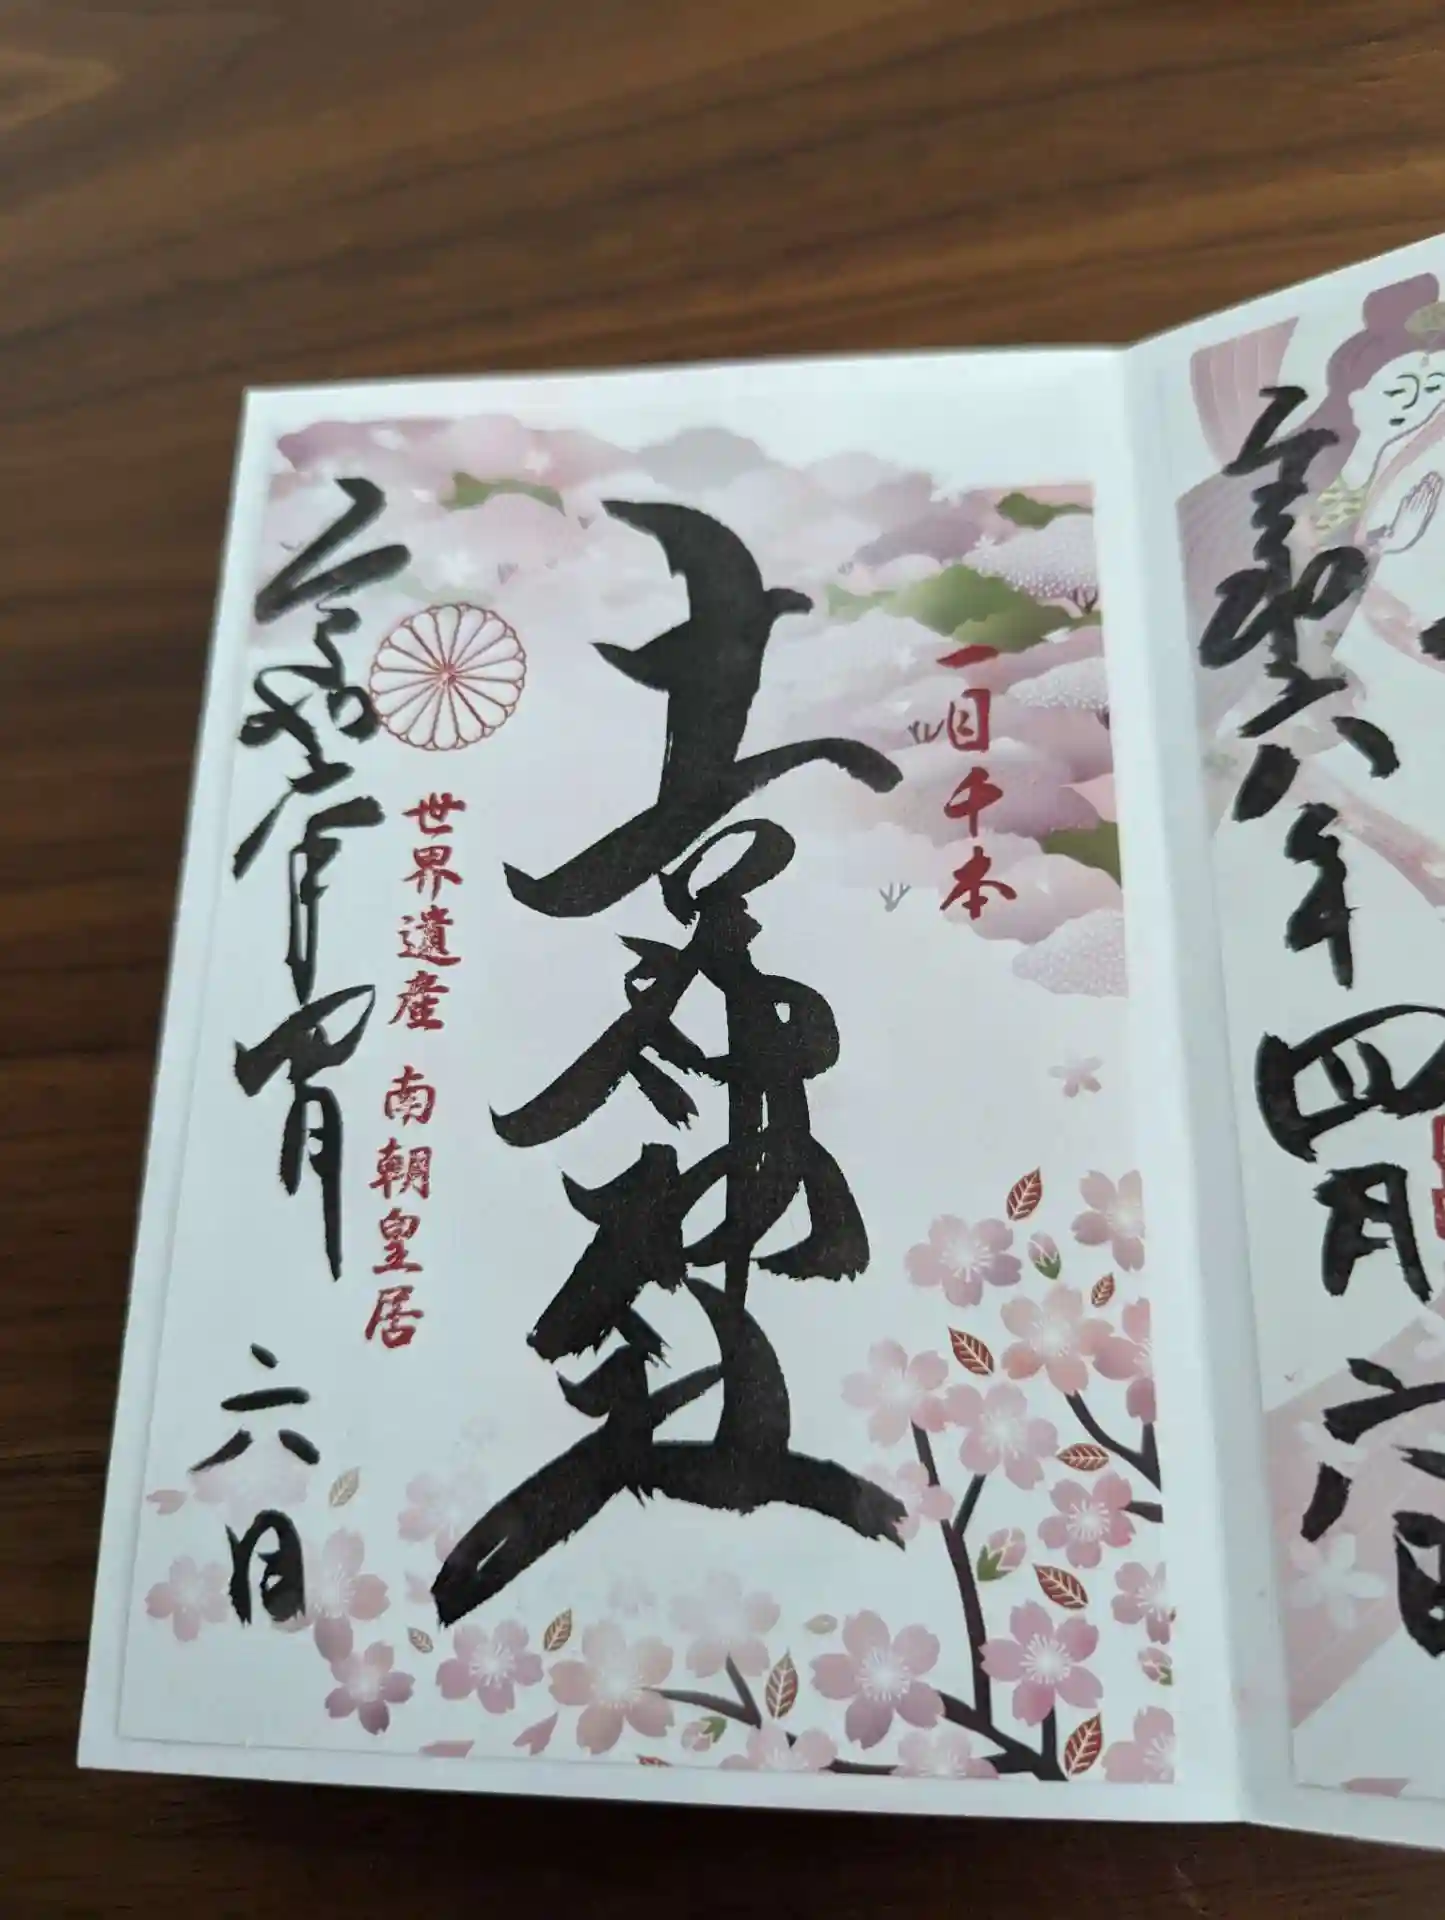 令和六年四月六日
一目千本
吉水神社
世界遺産 南朝皇居
令和六年四月 六日